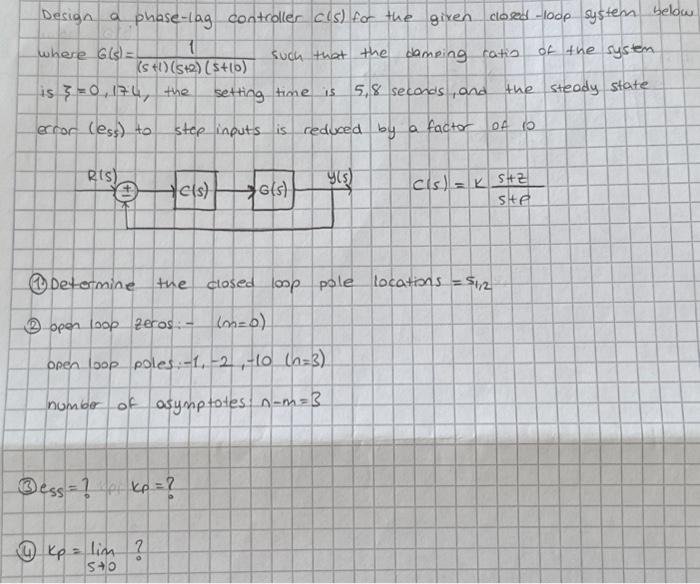 Design a phase-lag controller C(s) for the given closed-loop system below
where G(s)= 1 / (s+1)(s+2)(s+10) such that the damping ratio of the system
is ξ=0,174, the setting time is 5,8 seconds, and the steady state
error (ess) to step inputs is reduced by a factor of 10
R(s) ± C(s) G(s) Y(s) C(s) = K s+z / s+p
① Determine the closed loop pole locations = s1,2
② open loop zeros: - (m=0)
open loop poles: -1, -2, -10 (n=3)
number of asymptotes: n-m=3
③ ess=? kp=?
④ kp = lim s→0 ?